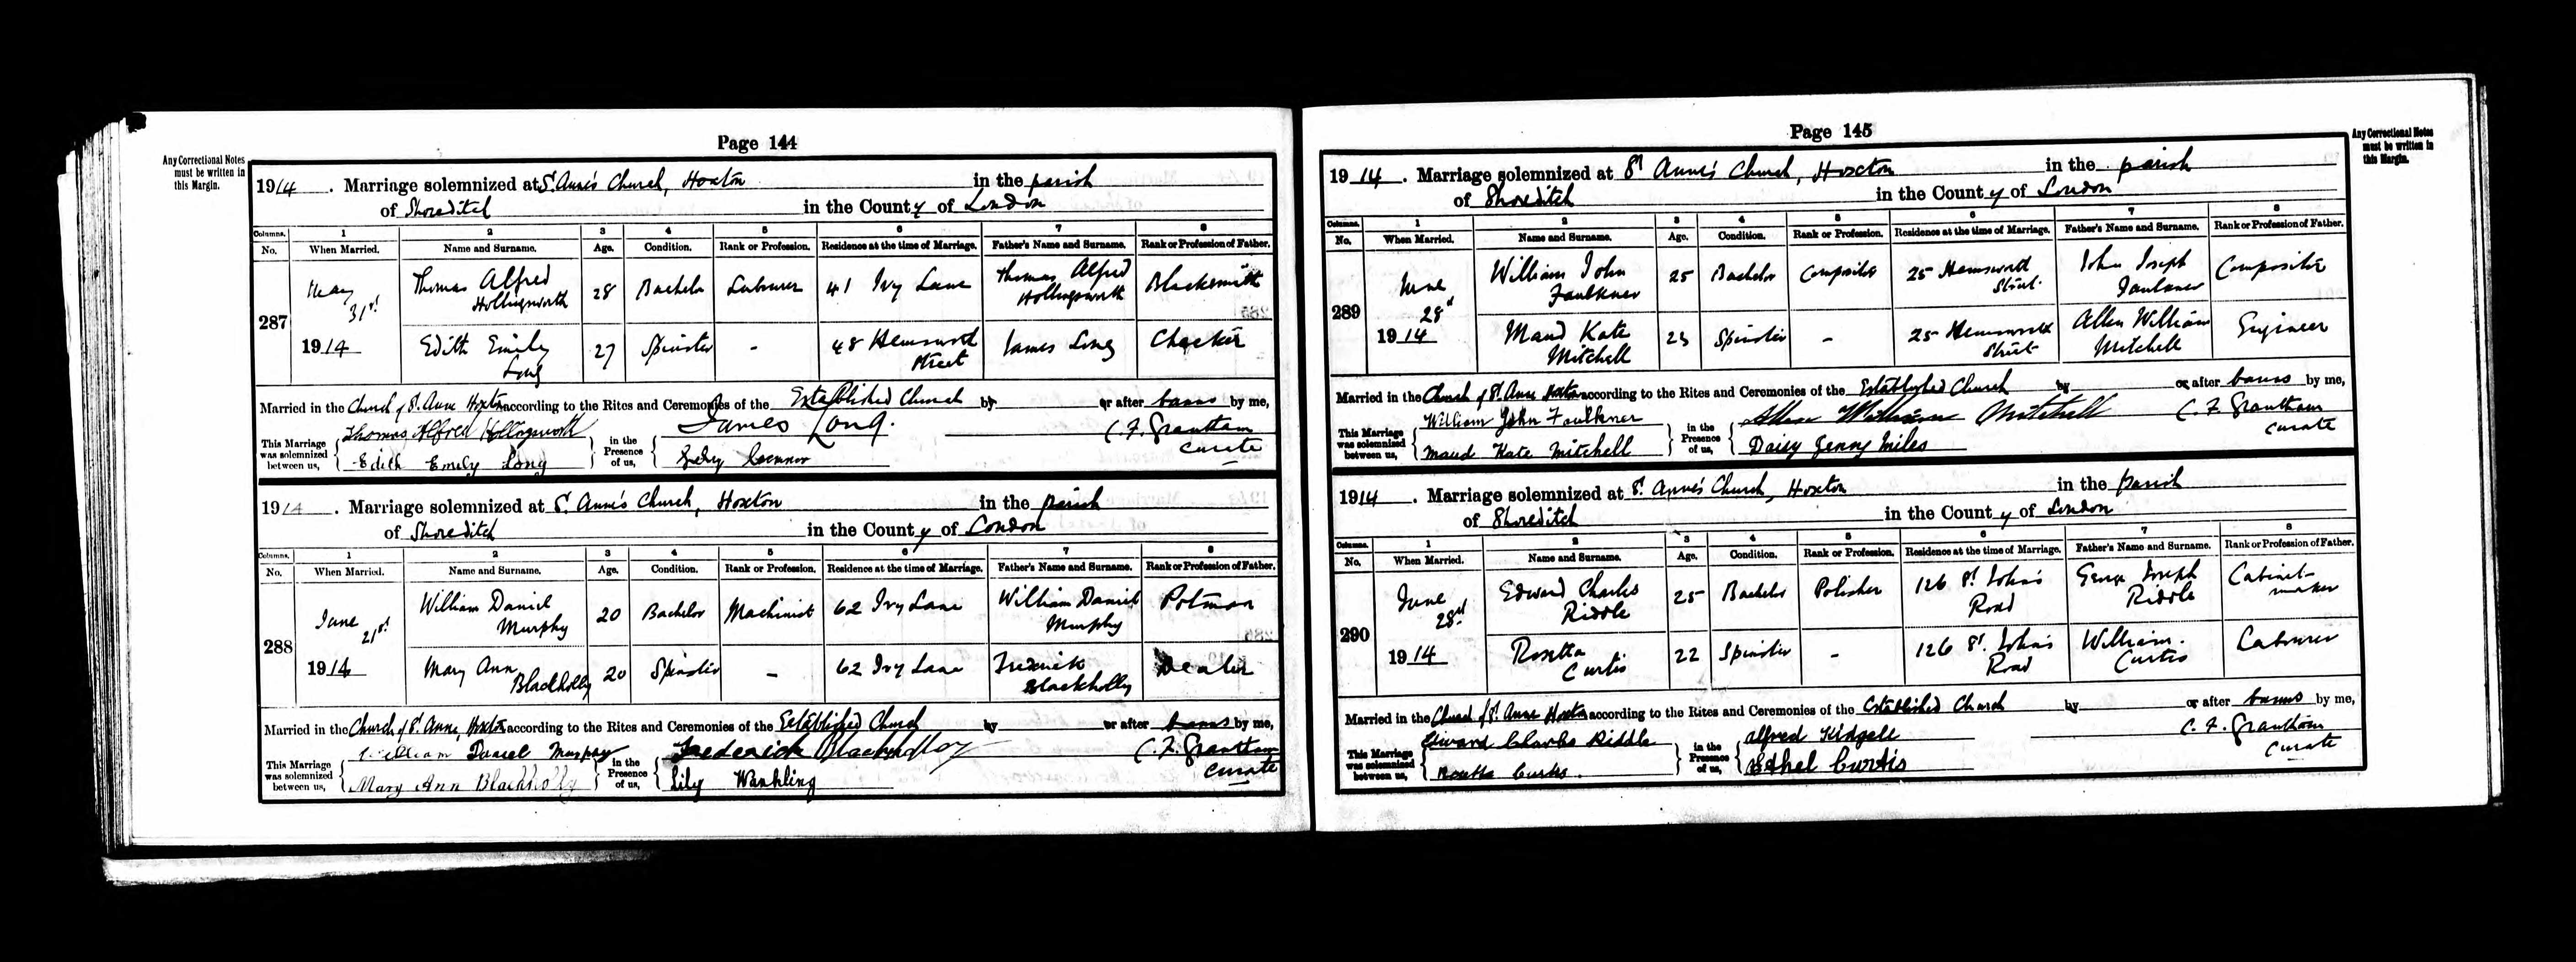 Page 144
Any Correctional Notes
must be written in
this Margin.
1914. Marriage solemnized at St. Anne's Church, Hoxton in the parish
of Shoreditch in the County of London
Columns. 1 2 3 4 5 6 7 8
No. When Married. Name and Surname. Age. Condition. Rank or Profession. Residence at the time of Marriage. Father's Name and Surname. Rank or Profession of Father.
287 May 31st 1914 Thomas Alfred Hollingsworth 28 Bachelor Labourer 41 Ivy Lane Thomas Alfred Hollingsworth Blacksmith
Edith Emily Long 27 Spinster - 48 Hemsworth Street James Long Checker
Married in the Church of St. Anne Hoxton according to the Rites and Ceremonies of the Established Church by or after banns by me,
This Marriage was solemnized between us, Thomas Alfred Hollingsworth in the Presence of us, James Long. C. F. Grantham
Edith Emily Long curate
1914. Marriage solemnized at St. Anne's Church, Hoxton in the parish
of Shoreditch in the County of London
Columns. 1 2 3 4 5 6 7 8
No. When Married. Name and Surname. Age. Condition. Rank or Profession. Residence at the time of Marriage. Father's Name and Surname. Rank or Profession of Father.
288 June 21st 1914 William Daniel Murphy 20 Bachelor Machinist 62 Ivy Lane William Daniel Murphy Potman
Mary Ann Blackholly 20 Spinster - 62 Ivy Lane Frederick Blackholly Dealer
Married in the Church of St. Anne, Hoxton according to the Rites and Ceremonies of the Established Church by or after banns by me,
This Marriage was solemnized between us, William Daniel Murphy in the Presence of us, Frederick Blackholly C. F. Grantham
Mary Ann Blackholly Lily Wankling curate
Page 145
Any Correctional Notes
must be written in
this Margin.
1914. Marriage solemnized at St Anne's Church, Hoxton in the parish
of Shoreditch in the County of London
Columns. 1 2 3 4 5 6 7 8
No. When Married. Name and Surname. Age. Condition. Rank or Profession. Residence at the time of Marriage. Father's Name and Surname. Rank or Profession of Father.
289 June 28th 1914 William John Faulkner 25 Bachelor Compositor 25 Hemsworth Street John Joseph Faulkner Compositor
Maud Kate Mitchell 23 Spinster - 25 Hemsworth Street Allen William Mitchell Engineer
Married in the Church of St. Anne Hoxton according to the Rites and Ceremonies of the Established Church by or after banns by me,
This Marriage was solemnized between us, William John Faulkner in the Presence of us, Allen William Mitchell C. F. Grantham
Maud Kate Mitchell Daisy Jenny Miles curate
1914. Marriage solemnized at St. Anne's Church, Hoxton in the parish
of Shoreditch in the County of London
Columns. 1 2 3 4 5 6 7 8
No. When Married. Name and Surname. Age. Condition. Rank or Profession. Residence at the time of Marriage. Father's Name and Surname. Rank or Profession of Father.
290 June 28th 1914 Edward Charles Riddle 25 Bachelor Polisher 126 St. John's Road George Joseph Riddle Cabinet-maker
Rosetta Curtis 22 Spinster - 126 St. John's Road William Curtis Labourer
Married in the Church of St. Anne Hoxton according to the Rites and Ceremonies of the Established Church by or after banns by me,
This Marriage was solemnized between us, Edward Charles Riddle in the Presence of us, Alfred Kidgell C. F. Grantham
Rosetta Curtis. Ethel Curtis curate